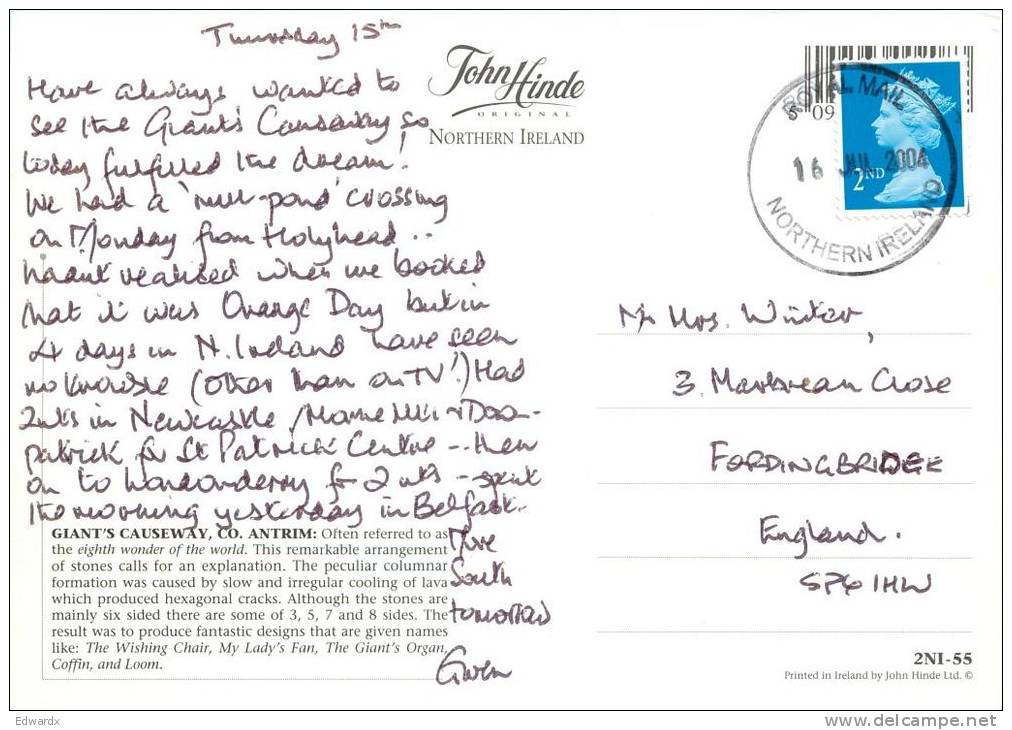 Thursday 15th
Have always wanted to
see the Giant's Causeway so
today fulfilled the dream!
We had a 'mill-pond' crossing
on Monday from Holyhead ..
hadn't realised when we booked
that it was Orange Day but in
4 days in N. Ireland have seen
no trouble (other than on TV!) Had
2 nts in Newcastle / Mourne Mts + Down-
patrick for St Patrick Centre -- then
on to Londonderry for 2 nts - spent
the morning yesterday in Belfast.
Move
South
tomorrow
Gwen
John Hinde
ORIGINAL
NORTHERN IRELAND
ROYAL MAIL
5 09
16 JUL 2004
2ND
NORTHERN IRELAND
Mr Mrs. Winter,
3. Close
FORDINGBRIDGE
England.
SP6 1HW
GIANT'S CAUSEWAY, CO. ANTRIM: Often referred to as
the eighth wonder of the world. This remarkable arrangement
of stones calls for an explanation. The peculiar columnar
formation was caused by slow and irregular cooling of lava
which produced hexagonal cracks. Although the stones are
mainly six sided there are some of 3, 5, 7 and 8 sides. The
result was to produce fantastic designs that are given names
like: The Wishing Chair, My Lady's Fan, The Giant's Organ,
Coffin, and Loom.
2NI-55
Printed in Ireland by John Hinde Ltd. ©
Edwardx
delcampe.net